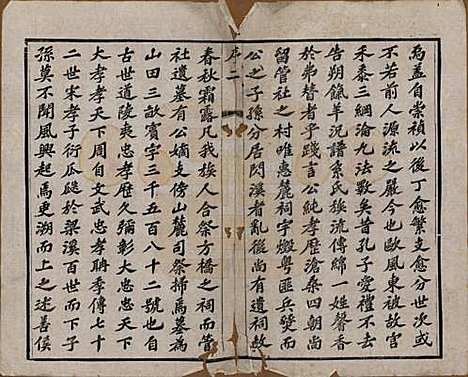 爲蓋自崇禎以後丁愈繁支愈分世次或
不若前人源流之嚴今也歐風東被故宮
禾黍三綱淪九法斁矣昔孔子愛禮不去
告朔餼羊况譜系氏族流傳綿一姓馨香
於弗替者乎踐言公純孝歷滄桑四朝尚
留管社之村唯惠麓祠宇燬粵匪兵燹而
公之子孫分居閃溪者亂後尚有遺祠故
序 二
春秋霜露凡我族人合祭方橋之祠而管
社遺墓有公嫡支傍山麓司祭掃爲墓爲
山田三畝賓字三千五百八十二號也中
古世道陵夷忠孝歷久彌彰大忠忠天下
大孝孝天下周自文武忠孝聃季傳七十
二世宋孝子衍瓜瓞於梁溪百世而下子
孫莫不聞風興起焉更溯而上之述善侯